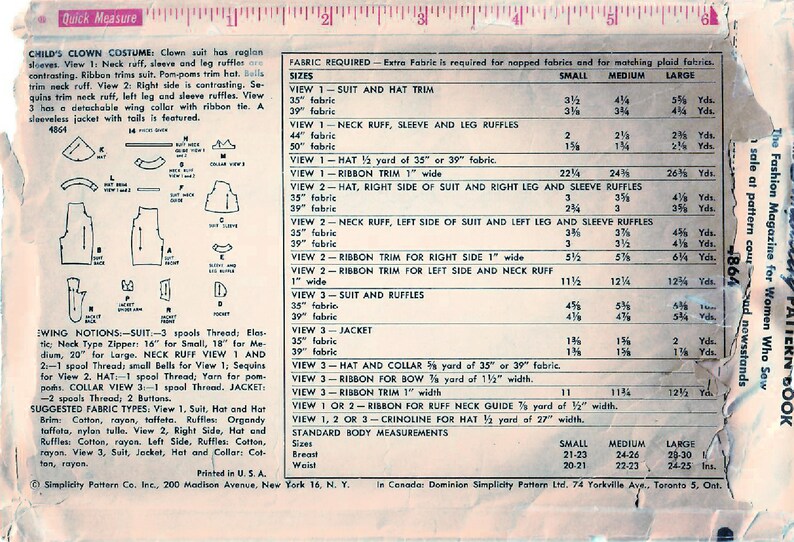 Quick Measure 1 2 3 4 5 6
CHILD'S CLOWN COSTUME: Clown suit has raglan
sleeves. View 1: Neck ruff, sleeve and leg ruffles are
contrasting. Ribbon trims suit. Pom-poms trim hat. Bells
trim neck ruff. View 2: Right side is contrasting. Se-
quins trim neck ruff, left leg and sleeve ruffles. View
3 has a detachable wing collar with ribbon tie. A
sleeveless jacket with tails is featured.
4864 14 PIECES GIVEN
K
HAT
H
RUFF NECK
GUIDE VIEW 1
and 2
M
COLLAR VIEW 3
G
NECK RUFF
VIEW 1 and 2
L
HAT BRIM
VIEW 1 and 2
F
SUIT NECK GUIDE
C
SUIT SLEEVE
B
SUIT
BACK
A
SUIT
FRONT
E
SLEEVE AND
LEG RUFFLE
N
JACKET
BACK
P
JACKET
UNDER ARM
R
JACKET
FRONT
D
POCKET
EWING NOTIONS:—SUIT:—3 spools Thread; Elas-
tic; Neck Type Zipper: 16" for Small, 18" for Me-
dium, 20" for Large. NECK RUFF VIEW 1 AND
2:—1 spool Thread; small Bells for View 1; Sequins
for View 2. HAT:—1 spool Thread; Yarn for pom-
poms. COLLAR VIEW 3:—1 spool Thread. JACKET:
—2 spools Thread; 2 Buttons.
SUGGESTED FABRIC TYPES: View 1, Suit, Hat and Hat
Brim: Cotton, rayon, taffeta. Ruffles: Organdy
taffeta, nylon tulle. View 2, Right Side, Hat and
Ruffles: Cotton, rayon. Left Side, Ruffles: Cotton,
rayon. View 3, Suit, Jacket, Hat and Collar: Cot-
ton, rayon.
Printed in U. S. A.
FABRIC REQUIRED — Extra Fabric is required for napped fabrics and for matching plaid fabrics.
SIZES SMALL MEDIUM LARGE
VIEW 1 — SUIT AND HAT TRIM
35" fabric 3½ 4¼ 5⅝ Yds.
39" fabric 3⅛ 3¾ 4¾ Yds.
VIEW 1 — NECK RUFF, SLEEVE AND LEG RUFFLES
44" fabric 2 2⅛ 2⅜ Yds.
50" fabric 1⅝ 1¾ 2⅛ Yds.
VIEW 1 — HAT ½ yard of 35" or 39" fabric.
VIEW 1 — RIBBON TRIM 1" wide 22¼ 24⅜ 26⅜ Yds.
VIEW 2 — HAT, RIGHT SIDE OF SUIT AND RIGHT LEG AND SLEEVE RUFFLES
35" fabric 3 3⅝ 4⅛ Yds.
39" fabric 2¾ 3 3⅝ Yds.
VIEW 2 — NECK RUFF, LEFT SIDE OF SUIT AND LEFT LEG AND SLEEVE RUFFLES
35" fabric 3⅜ 3⅞ 4⅝ Yds.
39" fabric 3 3½ 4⅛ Yds.
VIEW 2 — RIBBON TRIM FOR RIGHT SIDE 1" wide 5½ 5⅞ 6¼ Yds.
VIEW 2 — RIBBON TRIM FOR LEFT SIDE AND NECK RUFF
1" wide 11½ 12¼ 12¾ Yds.
VIEW 3 — SUIT AND RUFFLES
35" fabric 4⅝ 5⅜ Yds.
39" fabric 4⅛ 4⅞ 5¾ Yds.
VIEW 3 — JACKET
35" fabric 1⅜ 1⅝ 2 Yds.
39" fabric 1⅜ 1⅝ 1⅞ Yds.
VIEW 3 — HAT AND COLLAR ⅝ yard of 35" or 39" fabric.
VIEW 3 — RIBBON FOR BOW ⅞ yard of 1½" width.
VIEW 3 — RIBBON TRIM 1" width 11 11¾ 12½ Yds.
VIEW 1 OR 2 — RIBBON FOR RUFF NECK GUIDE ⅞ yard of ½" width.
VIEW 1, 2 OR 3 — CRINOLINE FOR HAT ½ yard of 27" width.
STANDARD BODY MEASUREMENTS
Sizes SMALL MEDIUM LARGE
Breast 21-23 24-26 28-30 Ins.
Waist 20-21 22-23 24-25 Ins.
© Simplicity Pattern Co. Inc., 200 Madison Avenue, New York 16, N. Y. In Canada: Dominion Simplicity Pattern Ltd. 74 Yorkville Ave., Toronto 5, Ont.
4864
PATTERN BOOK
The Fashion Magazine for Women Who Sew
sale at pattern
and newsstands